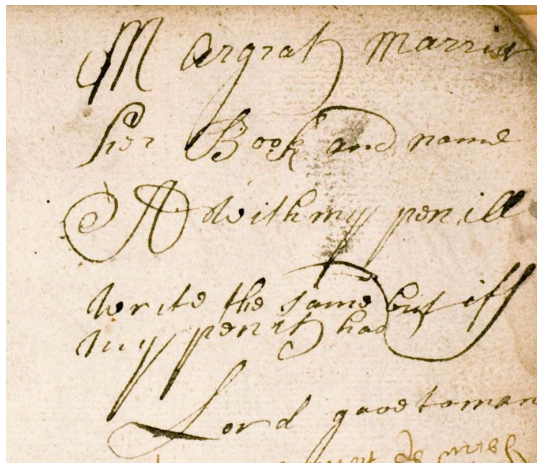 Margrat Marris
her Book and name
A with my pen ill
write the same but iff
my pen it had
Lord gave to man